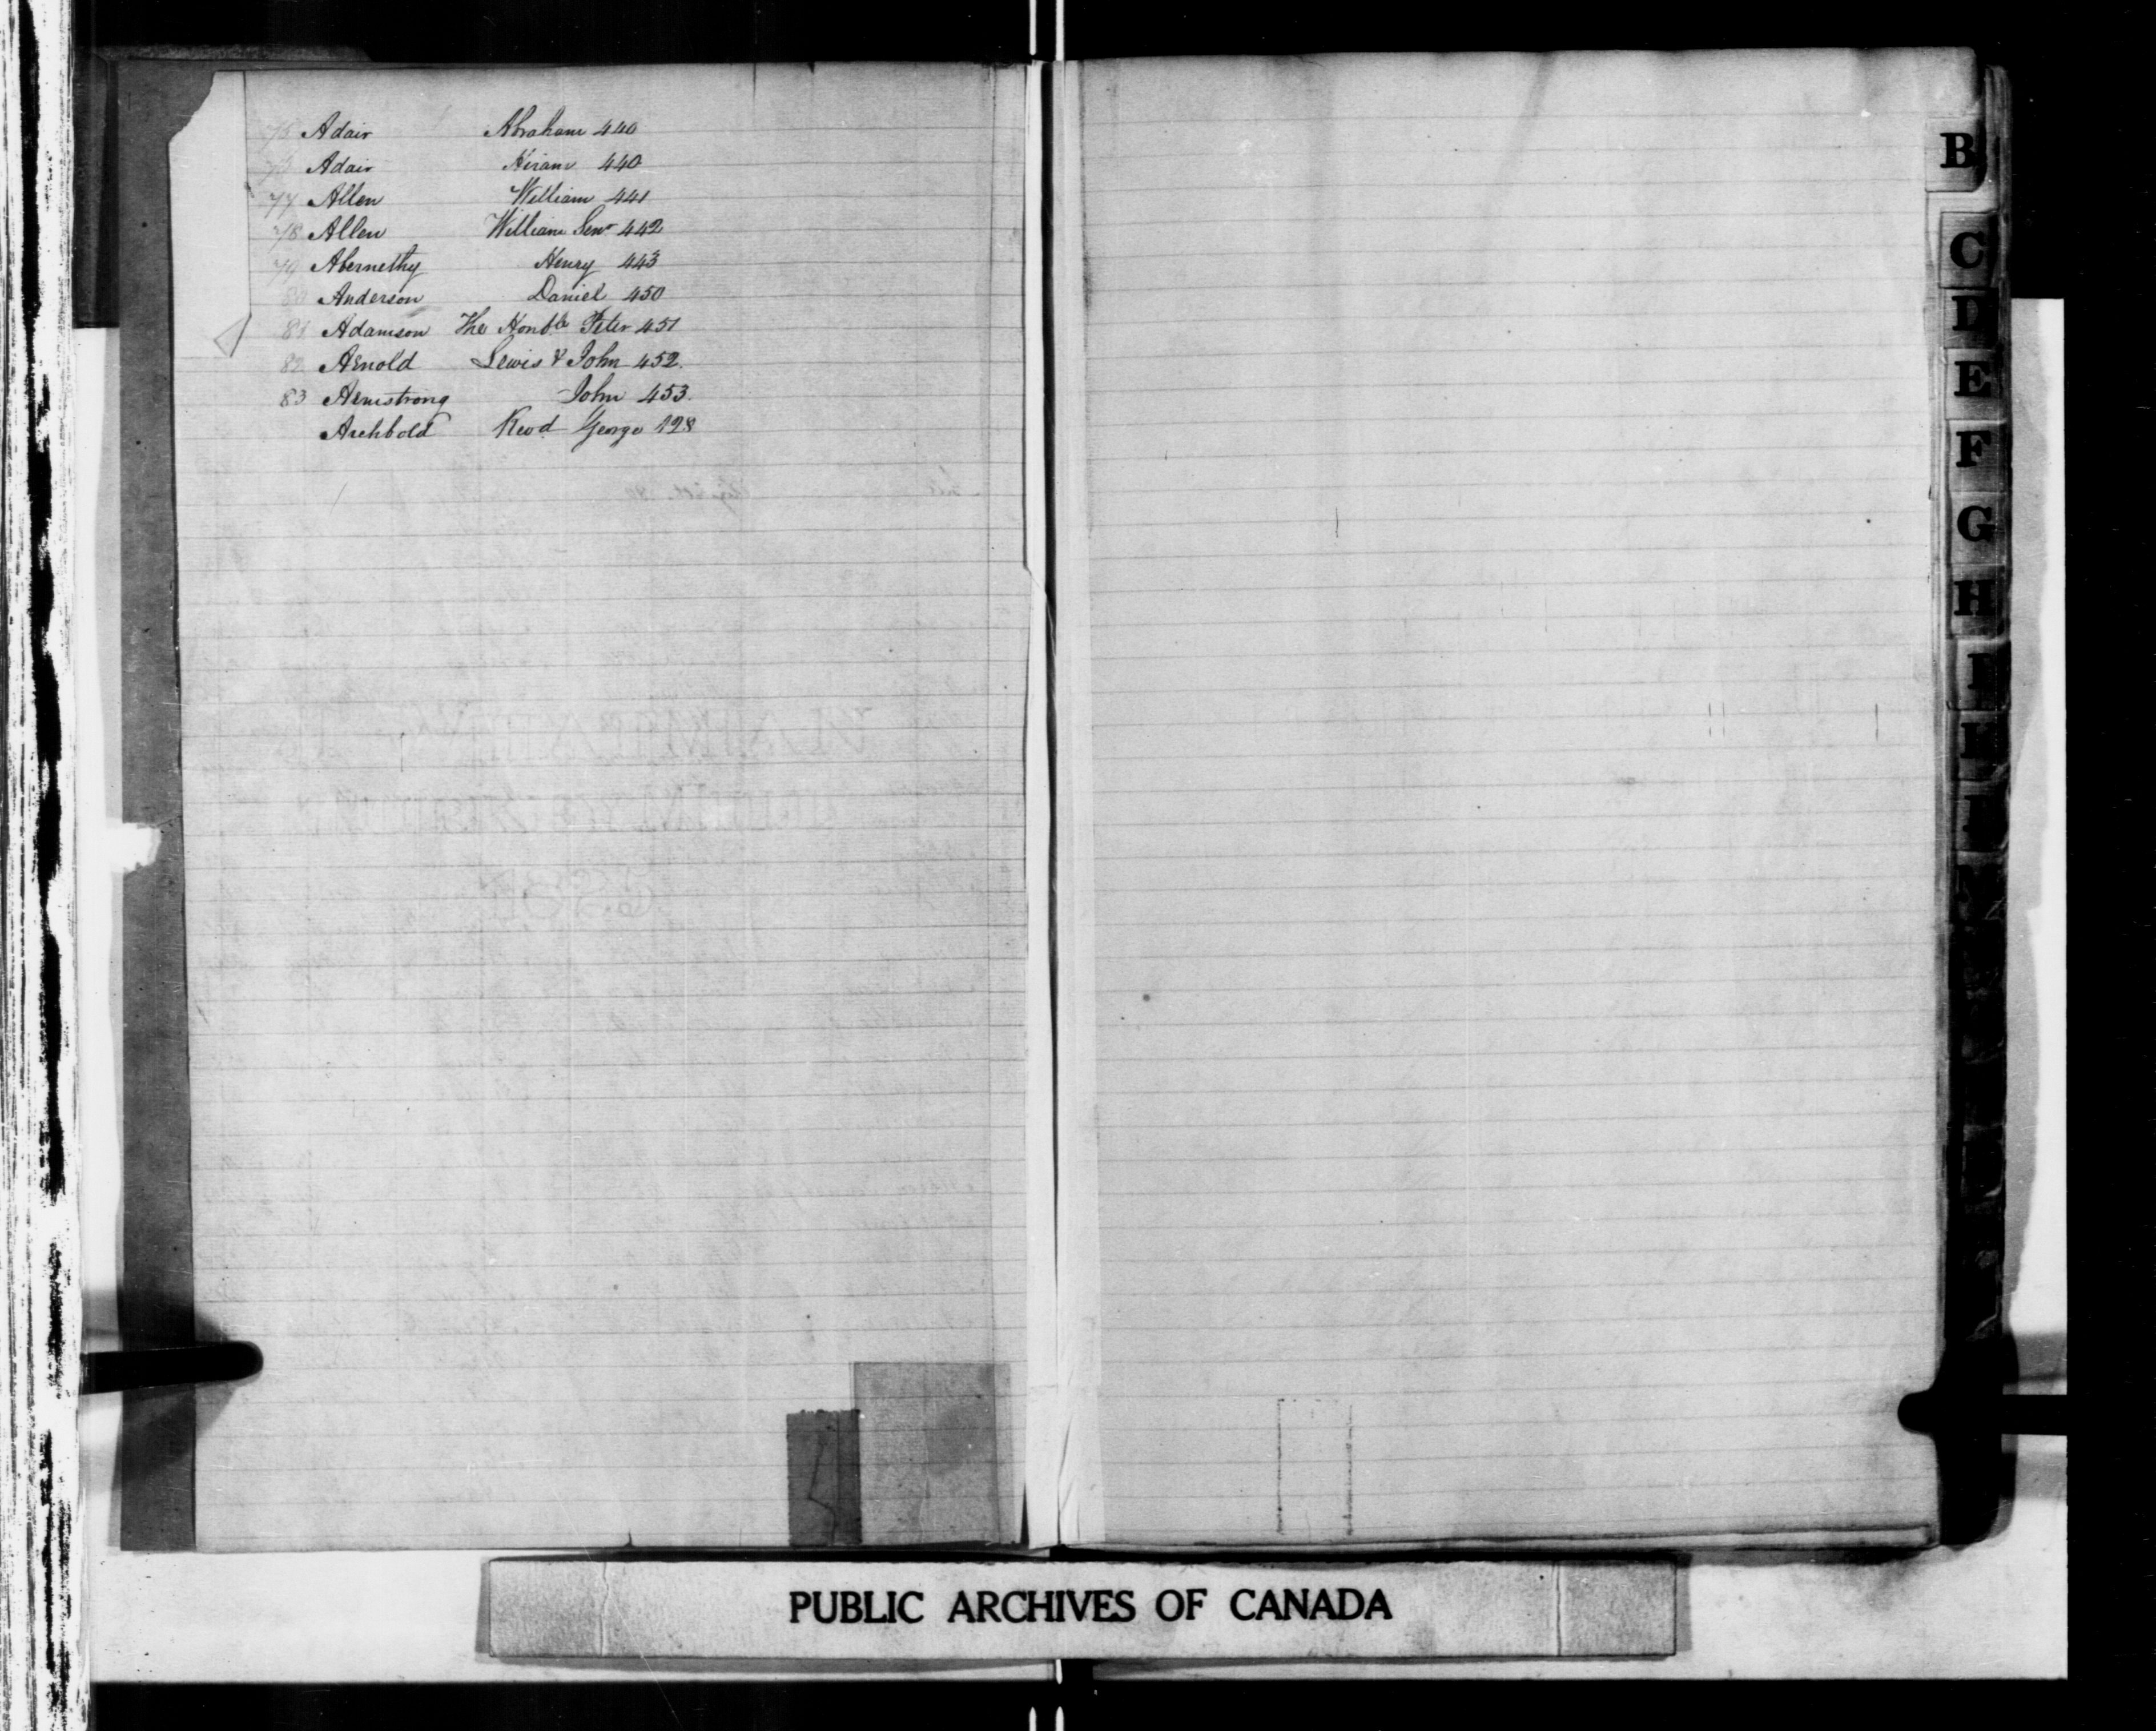 75 Adair Abraham 440
Adair Hiram 440
77 Allen William 441
78 Allen William Senr 442
79 Abernethy Henry 443
80 Anderson Daniel 450
81 Adamson The Honble Peter 451
82 Arnold Lewis & John 452.
83 Armstrong John 453.
Archbold Revd George 128
B
C
D
E
F
G
H
I
PUBLIC ARCHIVES OF CANADA